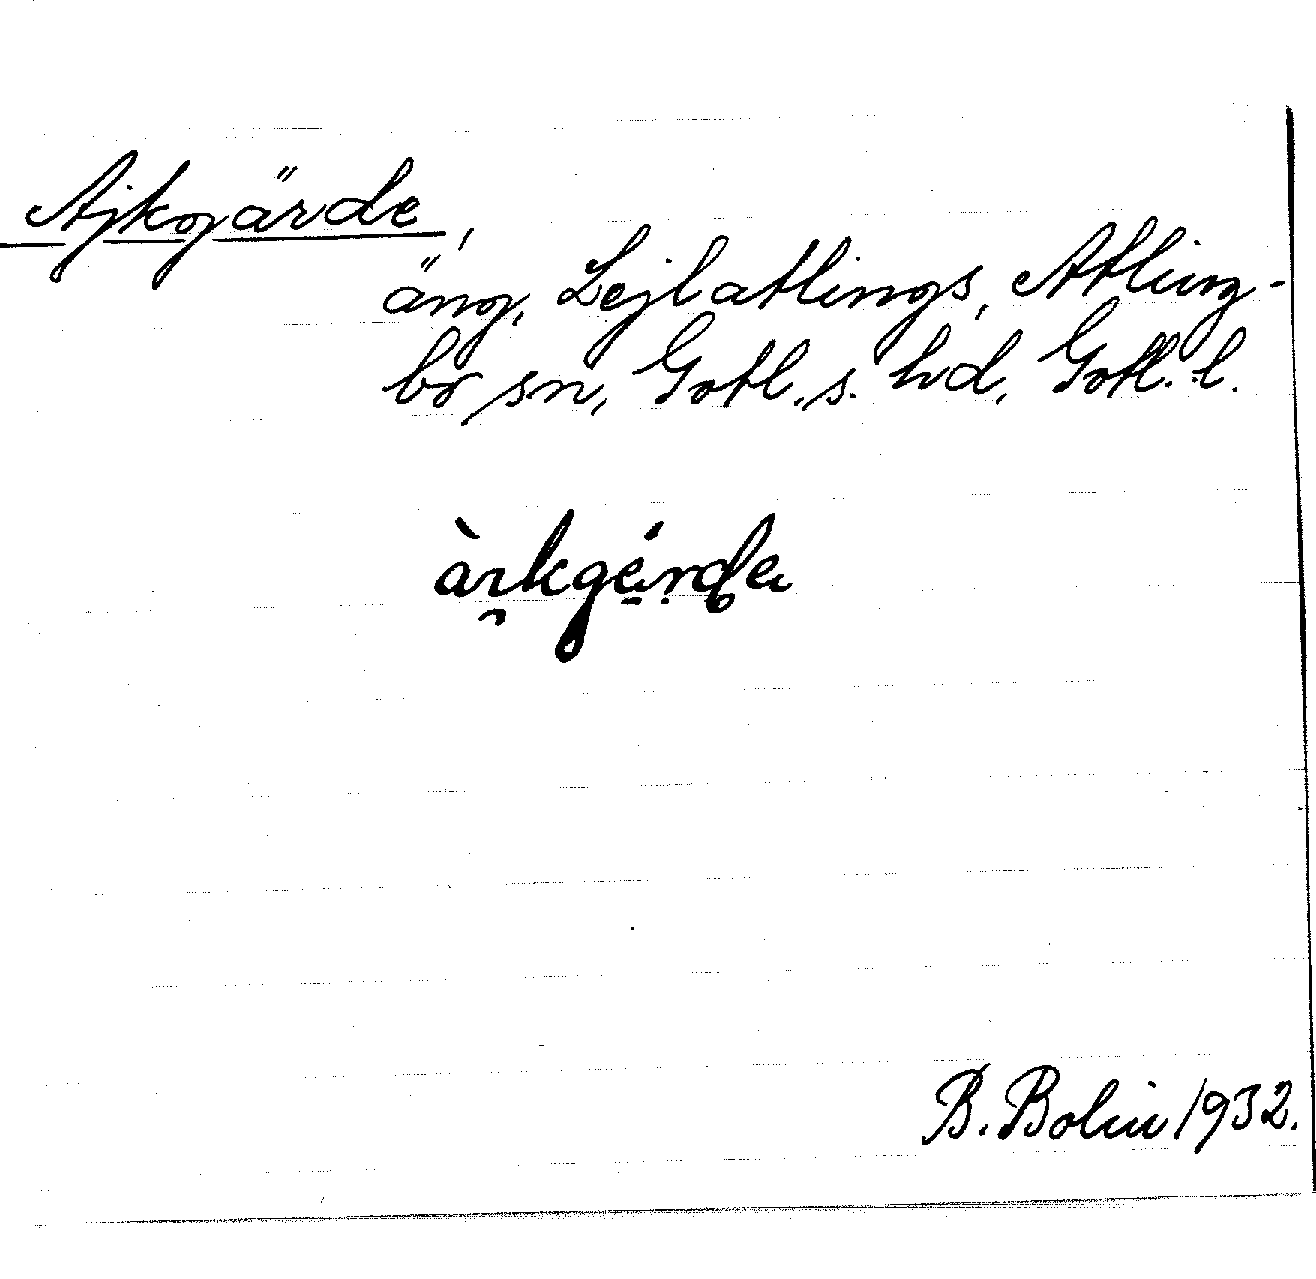 Ajkgärde,
äng, Lejlatlings, Atling-
bo sn, Gotl. s. hd, Gotl. l.
B. Bolin 1932.